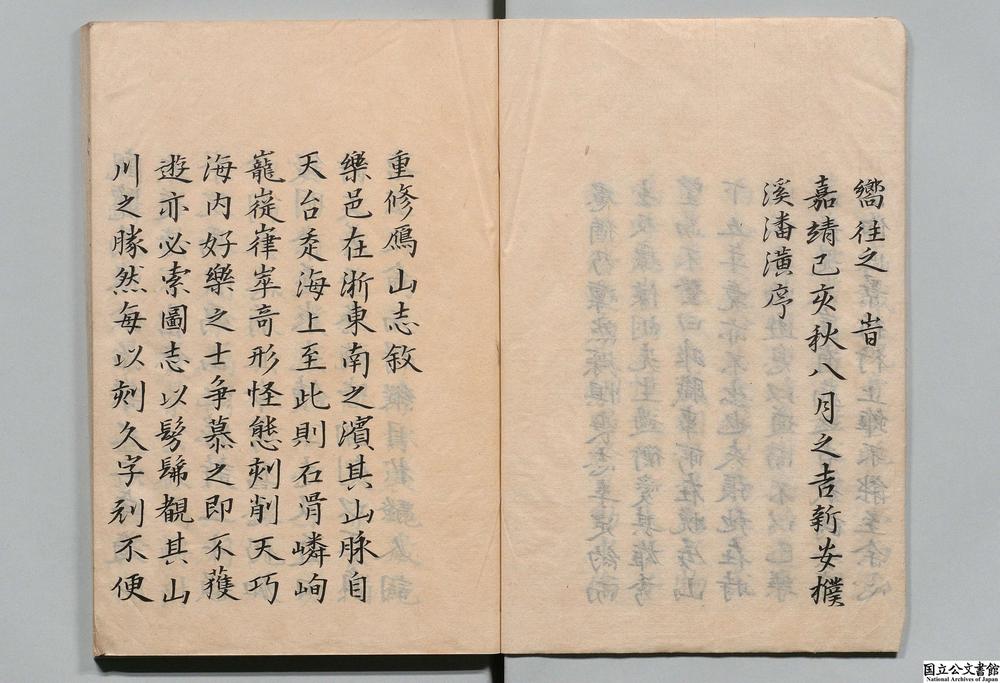 嚮往之旹
嘉靖己亥秋八月之吉新安撲
溪潘潢序
重修鴈山志敘
樂邑在浙東南之濱其山脉自
天台逶海上至此則石骨嶙峋
巃嵸嵂崒竒形怪態刻削天巧
海内好樂之士争慕之即不獲
遊亦必索圖志以髣髴覩其山
川之勝然每以刻久字刓不便
国立公文書館
National Archives of Japan